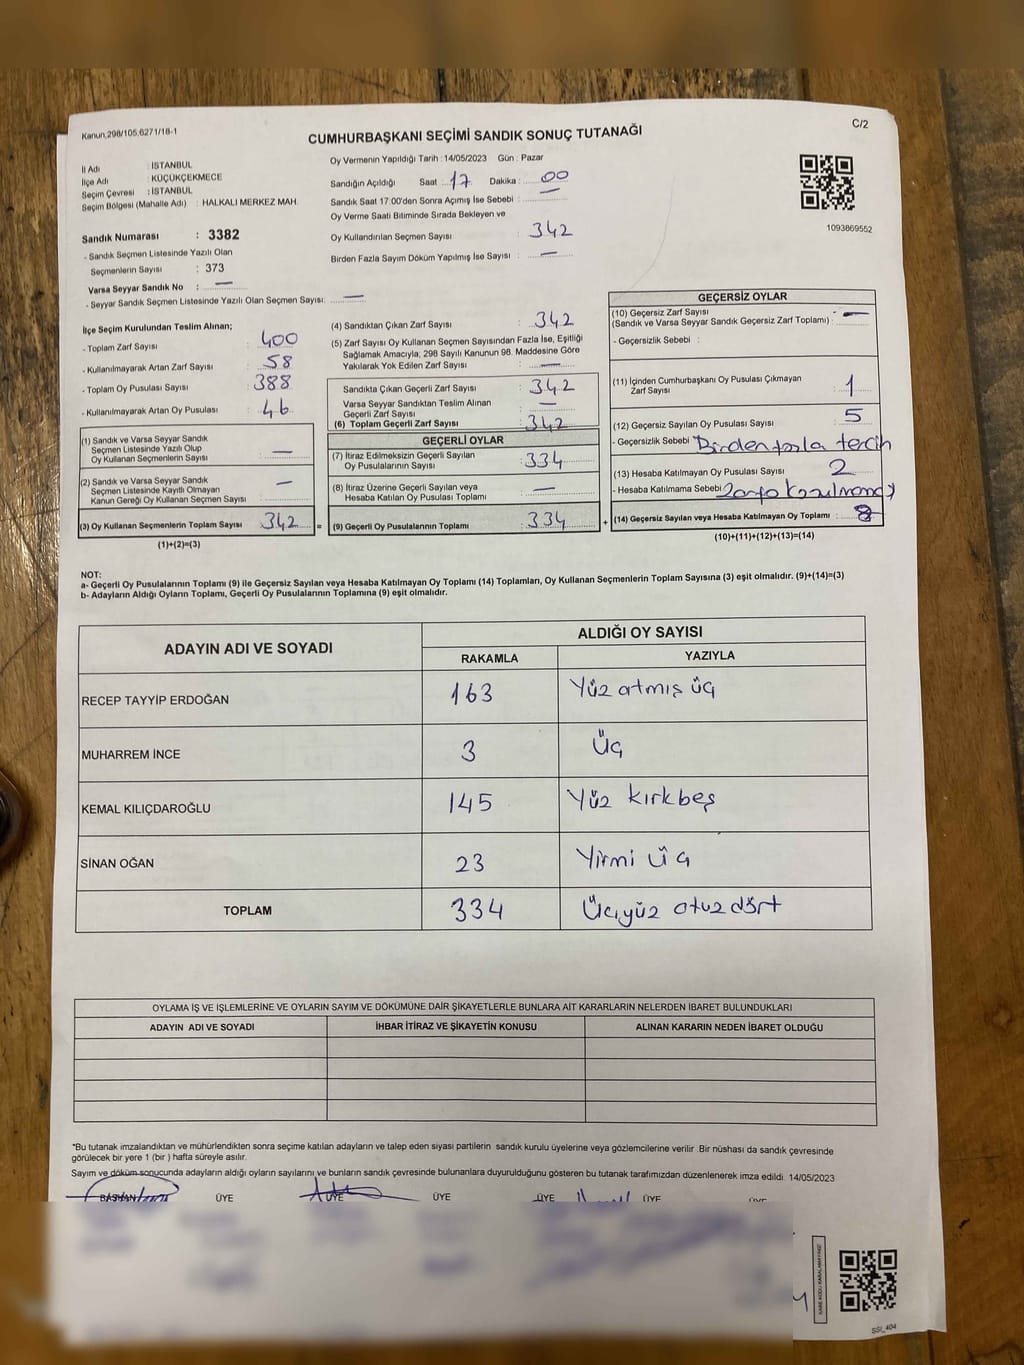 Kanun,298/105,6271/18-1
C/2
CUMHURBAŞKANI SEÇİMİ SANDIK SONUÇ TUTANAĞI
İl Adı : İSTANBUL
İlçe Adı : KÜÇÜKÇEKMECE
Seçim Çevresi : İSTANBUL
Seçim Bölgesi (Mahalle Adı) : HALKALI MERKEZ MAH.
Sandık Numarası : 3382
- Sandık Seçmen Listesinde Yazılı Olan
Seçmenlerin Sayısı : 373
Varsa Seyyar Sandık No : —
- Seyyar Sandık Seçmen Listesinde Yazılı Olan Seçmen Sayısı: —
Oy Vermenin Yapıldığı Tarih : 14/05/2023 Gün : Pazar
Sandığın Açıldığı Saat : 17 Dakika : 00
Sandık Saat 17:00'den Sonra Açımış İse Sebebi : —
Oy Verme Saati Bitiminde Sırada Bekleyen ve
Oy Kullandırılan Seçmen Sayısı : 342
Birden Fazla Sayım Döküm Yapılmış İse Sayısı : —
1093869552
İlçe Seçim Kurulundan Teslim Alınan;
- Toplam Zarf Sayısı : 400
- Kullanılmayarak Artan Zarf Sayısı : 58
- Toplam Oy Pusulası Sayısı : 388
- Kullanılmayarak Artan Oy Pusulası : 46
(1) Sandık ve Varsa Seyyar Sandık
Seçmen Listesinde Yazılı Olup
Oy Kullanan Seçmenlerin Sayısı : —
(2) Sandık ve Varsa Seyyar Sandık
Seçmen Listesinde Kayıtlı Olmayan
Kanun Gereği Oy Kullanan Seçmen Sayısı : —
(3) Oy Kullanan Seçmenlerin Toplam Sayısı : 342 =
(1)+(2)=(3)
(4) Sandıktan Çıkan Zarf Sayısı : 342
(5) Zarf Sayısı Oy Kullanan Seçmen Sayısından Fazla İse, Eşitliği
Sağlamak Amacıyla, 298 Sayılı Kanunun 98. Maddesine Göre
Yakılarak Yok Edilen Zarf Sayısı : —
Sandıkta Çıkan Geçerli Zarf Sayısı : 342
Varsa Seyyar Sandıktan Teslim Alınan
Geçerli Zarf Sayısı : —
(6) Toplam Geçerli Zarf Sayısı : 342
GEÇERLİ OYLAR
(7) İtiraz Edilmeksizin Geçerli Sayılan
Oy Pusulalarının Sayısı : 334
(8) İtiraz Üzerine Geçerli Sayılan veya
Hesaba Katılan Oy Pusulası Toplamı : —
(9) Geçerli Oy Pusulalarının Toplamı : 334 +
GEÇERSİZ OYLAR
(10) Geçersiz Zarf Sayısı
(Sandık ve Varsa Seyyar Sandık Geçersiz Zarf Toplamı) : —
- Geçersizlik Sebebi :
(11) İçinden Cumhurbaşkanı Oy Pusulası Çıkmayan
Zarf Sayısı : 1
(12) Geçersiz Sayılan Oy Pusulası Sayısı : 5
- Geçersizlik Sebebi : Birden fazla tercih
(13) Hesaba Katılmayan Oy Pusulası Sayısı : 2
- Hesaba Katılmama Sebebi :
(14) Geçersiz Sayılan veya Hesaba Katılmayan Oy Toplamı : 8
(10)+(11)+(12)+(13)=(14)
NOT:
a- Geçerli Oy Pusulalarının Toplamı (9) ile Geçersiz Sayılan veya Hesaba Katılmayan Oy Toplamı (14) Toplamları, Oy Kullanan Seçmenlerin Toplam Sayısına (3) eşit olmalıdır. (9)+(14)=(3)
b- Adayların Aldığı Oyların Toplamı, Geçerli Oy Pusulalarının Toplamına (9) eşit olmalıdır.
ADAYIN ADI VE SOYADI ALDIĞI OY SAYISI
RAKAMLA YAZIYLA
RECEP TAYYİP ERDOĞAN 163 Yüz atmış üç
MUHARREM İNCE 3 Üç
KEMAL KILIÇDAROĞLU 145 Yüz kırkbeş
SİNAN OĞAN 23 Yirmi üç
TOPLAM 334 Üçyüz otuz dört
OYLAMA İŞ VE İŞLEMLERİNE VE OYLARIN SAYIM VE DÖKÜMÜNE DAİR ŞİKAYETLERLE BUNLARA AİT KARARLARIN NELERDEN İBARET BULUNDUKLARI
ADAYIN ADI VE SOYADI İHBAR İTİRAZ VE ŞİKAYETİN KONUSU ALINAN KARARIN NEDEN İBARET OLDUĞU
*Bu tutanak imzalandıktan ve mühürlendikten sonra seçime katılan adayların ve talep eden siyasi partilerin sandık kurulu üyelerine veya gözlemcilerine verilir. Bir nüshası da sandık çevresinde
görülecek bir yere 1 (bir ) hafta süreyle asılır.
Sayım ve döküm sonucunda adayların aldığı oyların sayılarını ve bunların sandık çevresinde bulunanlara duyurulduğunu gösteren bu tutanak tarafımızdan düzenlenerek imza edildi. 14/05/2023
BAŞKAN ÜYE ÜYE ÜYE ÜYE ÜYE ÜYE
SSI_404